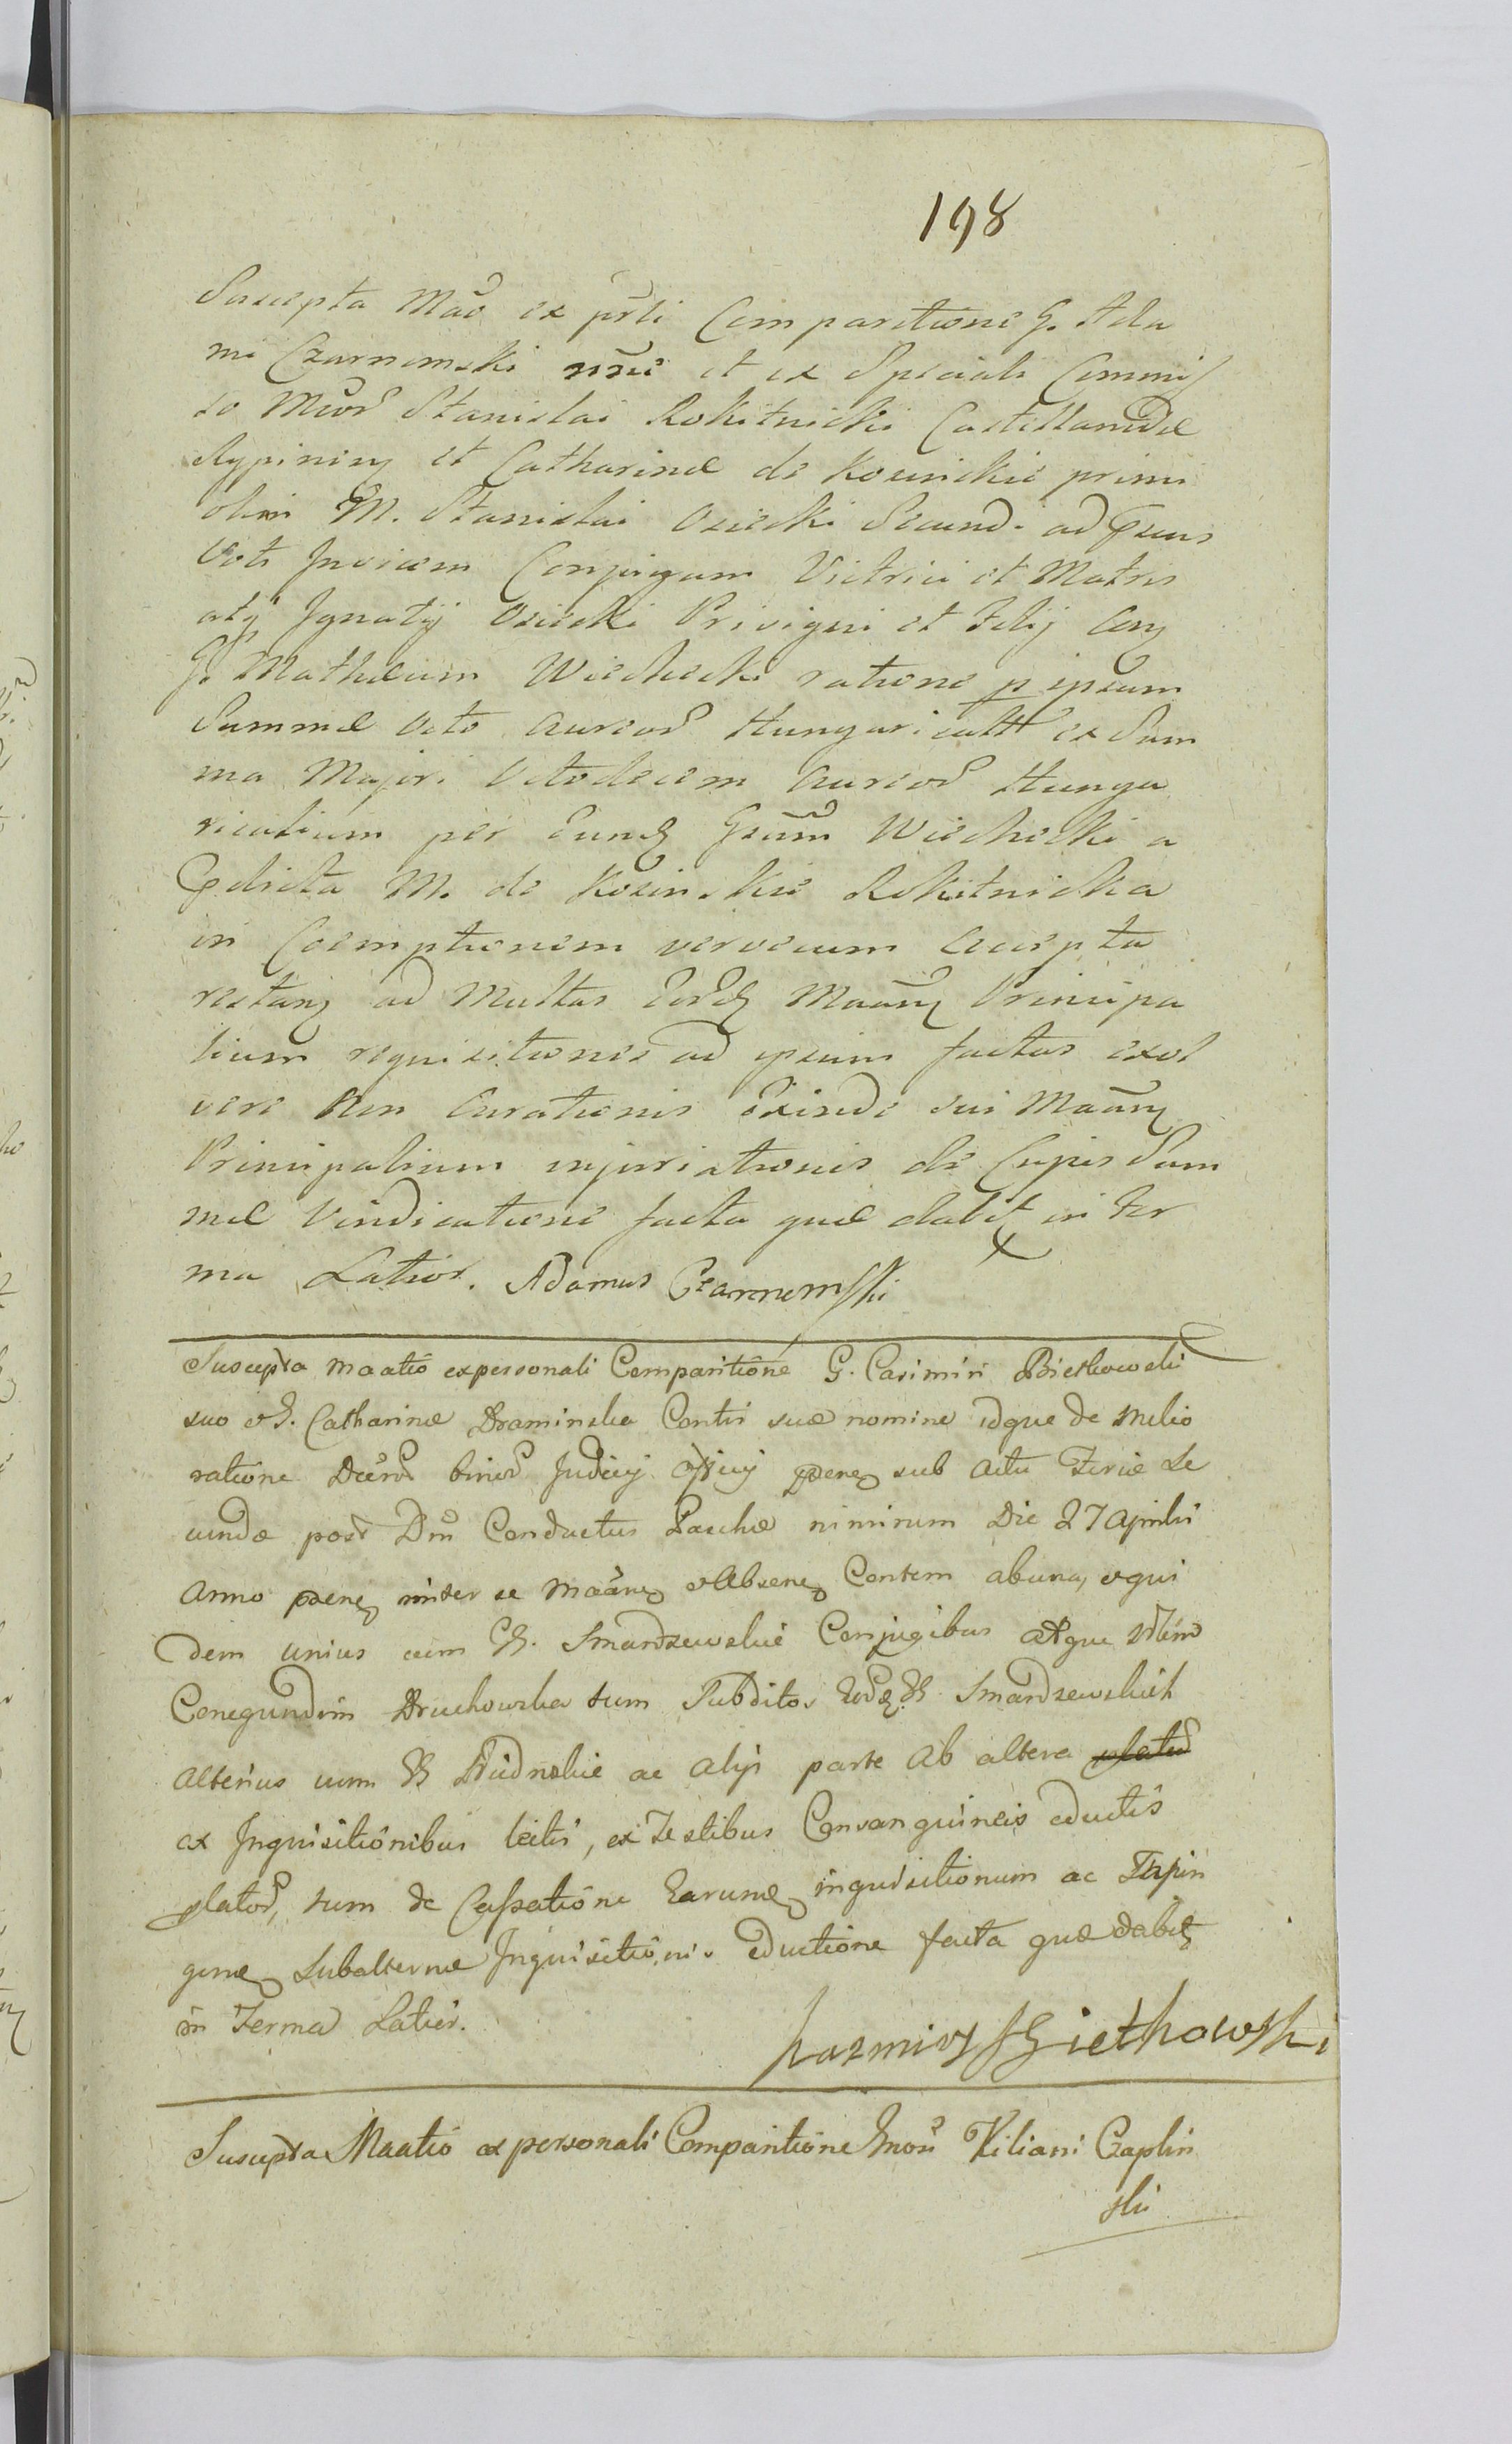 198
Suscepta Mao ex prli Comparitione G. Ada
mi Czarnomski nne et ex Speciali Commis
so Mcor Stanislai Rokitnicki Castellanidae
Rypinien et Catharinae de Kosinskie primi
olim M. Stanislai Osiecki Secundi ad praens
voti Invicem Conjugum Vitrici et Matris
atq Ignatij Osiecki Privigni et Filij Con
G. Mathaeum Wiechecki ratione p ipsum
Summae Octo Aureor Hungaricalium ex Sum
ma Majori Octodecim Aureor Hunga
ricalium per Eund Gsum Wiechecki a
Praedicta M. de Kosinskie Rokitnicka
in Coemptionem vervecum Accepta
restan ad Multas Eord Maan Principa
lium requisitiones ad ipsum factas exol
vere Non Curationis Exinde sui Maan
Principalium injuriationis de Cujus Sum
mae Vindicatione facta quae dabit in Ter
ma Latior. Adamus Czarnomski
Suscepta maatio ex personali Comparitione G. Casimiri Bietkowski
suo et G. Catharinae Draminska Contis suae nomine idque de melio
ratione Decror binor Judicij Officij praesen sub actu Feriae Se
cundae post Dm Conductus Paschae nimirum Die 27 Aprilis
Anno praesen inter se Maanen et Absenen Contem ab una, et qui
dem unius cum GG. Smardzewskie Conjugibus atque
Conegundim Druchowska tum Subditos Eord GG. Smardzewskich
alterius cum GG Rudnskie ac alijs parte ab altera
ex Inquisitionibus lectis, ex Testibus Consanguineis eductis
plator, tum de Cassatione Earunden inquisitionum ac
genen Subalternae Inquisitionis eductione facta quae dabit
in Terma Latior.
Kazmirz Bietkowski
Suscepta Maatio ex personali Comparitione Gnosi Kiliani Czaplin
ski